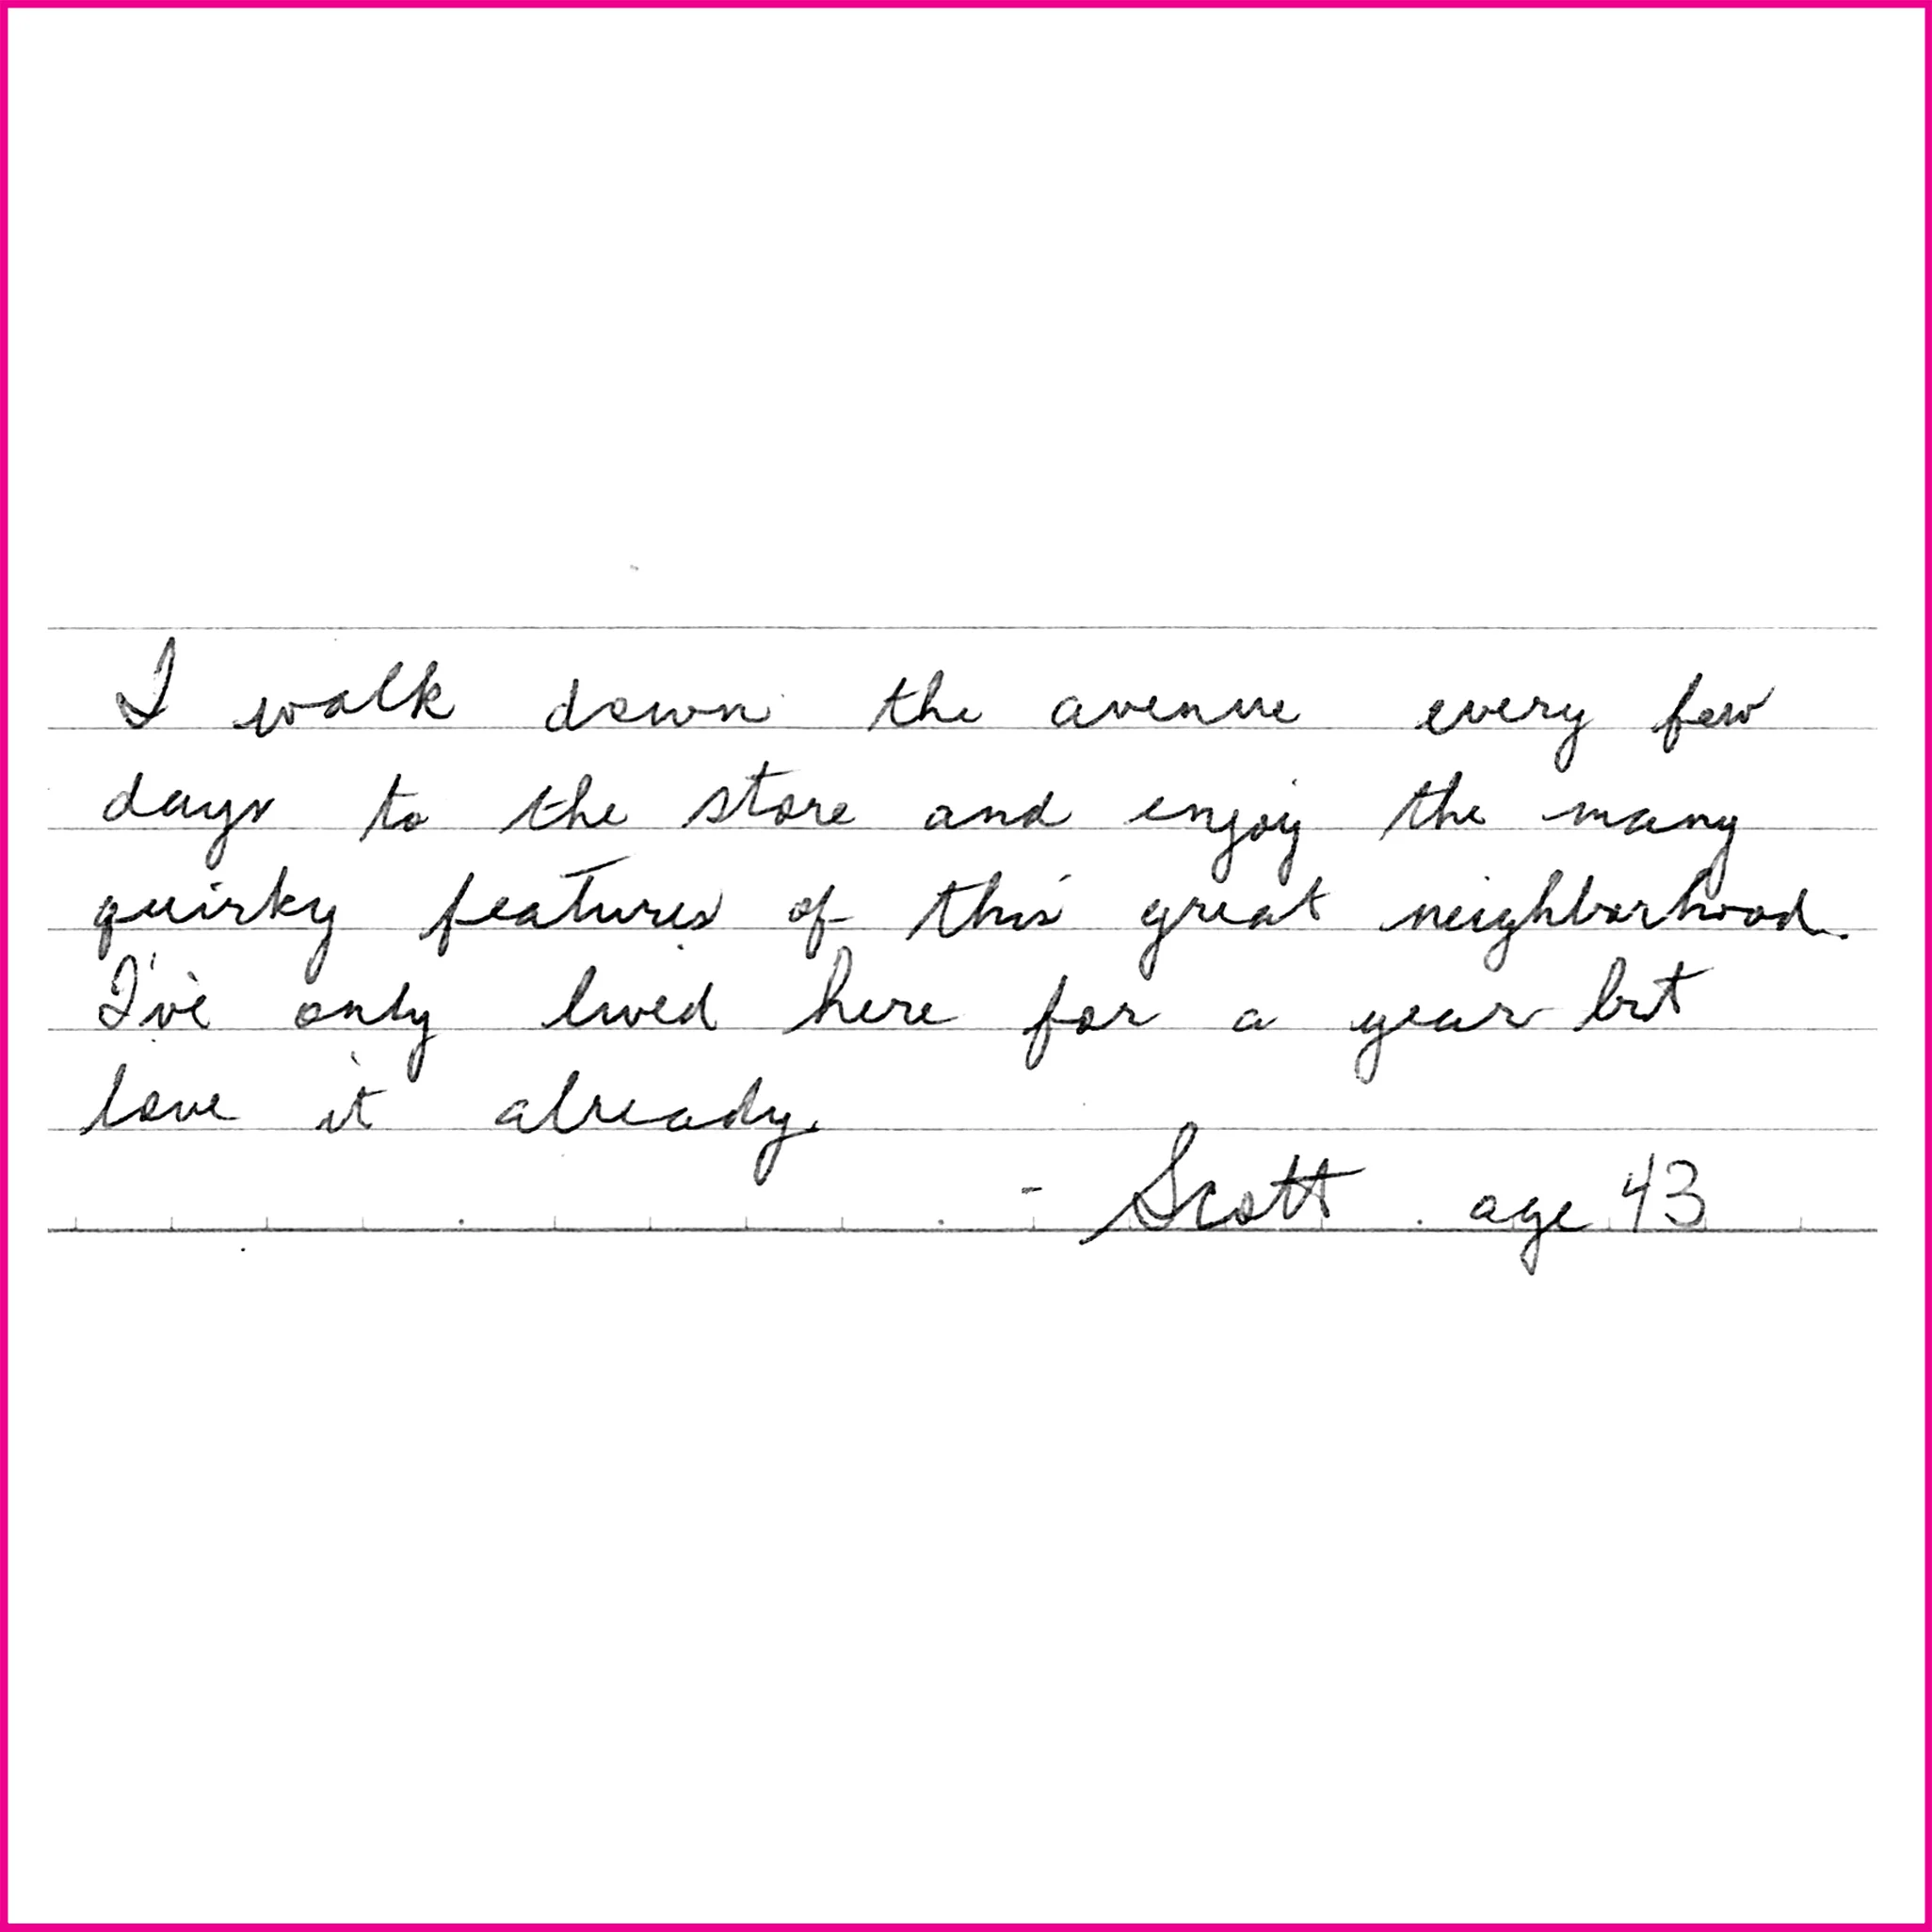 I walk down the avenue every few
days to the store and enjoy the many
quirky features of this great neighborhood.
I've only lived here for a year but
love it already.
- Scott age 43